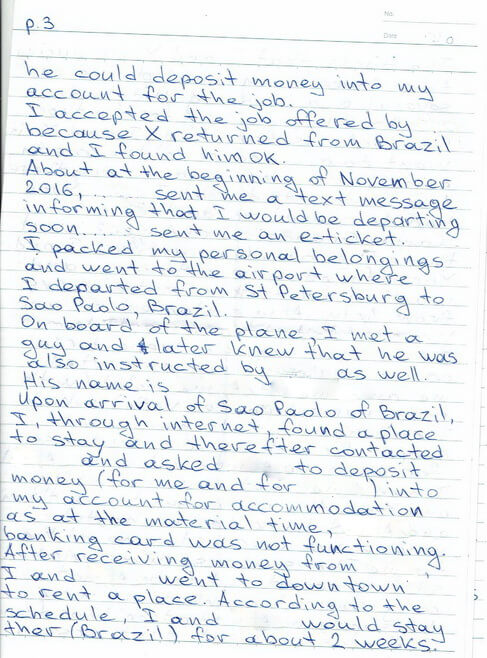 p.3
No.
Date
he could deposit money into my
account for the job.
I accepted the job offered by
because X returned from Brazil
and I found him OK.
About at the beginning of November
2016, .... sent me a text message
informing that I would be departing
soon.... sent me an e-ticket.
I packed my personal belongings
and went to the airport where
I departed from St Petersburg to
Sao Paolo, Brazil.
On board of the plane, I met a
guy and later knew that he was
also instructed by as well.
His name is
Upon arrival of Sao Paolo of Brazil,
I, through internet, found a place
to stay and therefter contacted
and asked to deposit
money (for me and for ) into
my account for accommodation
as at the material time,
banking card was not functioning.
After receiving money from ,
I and went to downtown
to rent a place. According to the
schedule, I and would stay
ther (Brazil) for about 2 weeks.